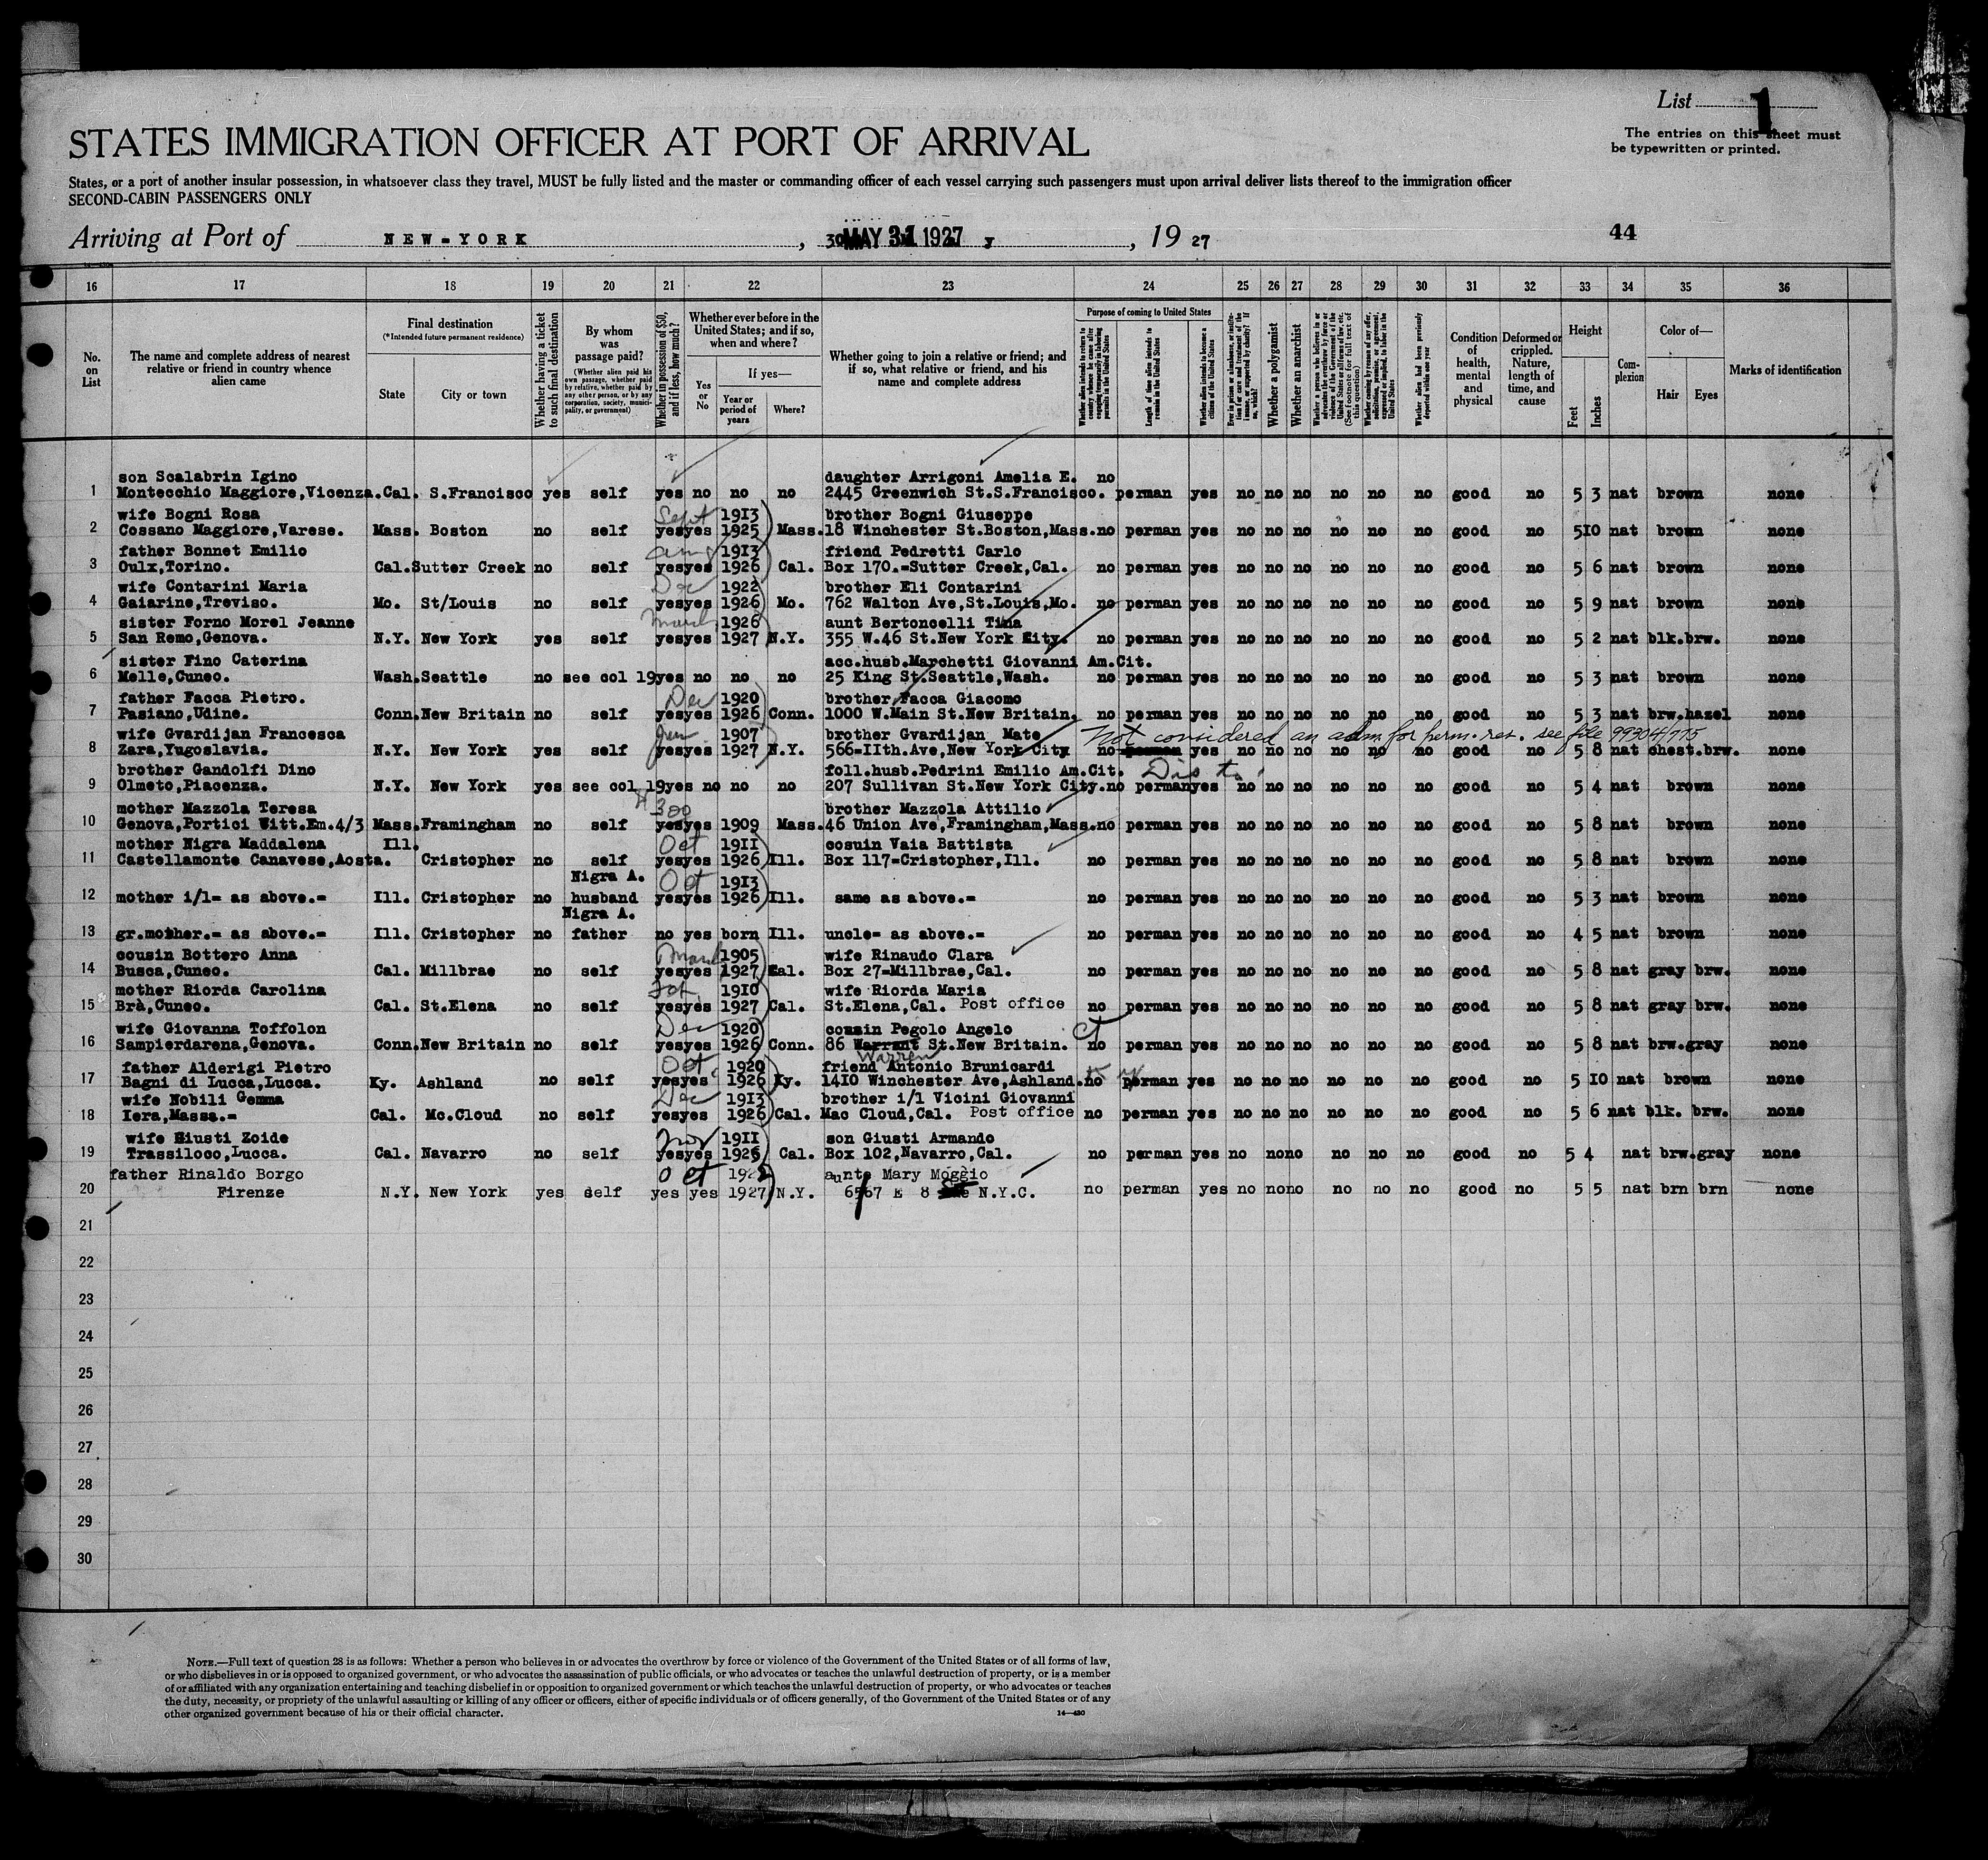 List 1
The entries on this sheet must
be typewritten or printed.
STATES IMMIGRATION OFFICER AT PORT OF ARRIVAL
States, or a port of another insular possession, in whatsoever class they travel, MUST be fully listed and the master or commanding officer of each vessel carrying such passengers must upon arrival deliver lists thereof to the immigration officer
SECOND-CABIN PASSENGERS ONLY
Arriving at Port of NEW-YORK , MAY 31 1927 y , 19 27
44
16 17 18 19 20 21 22 23 24 25 26 27 28 29 30 31 32 33 34 35 36
No. on List
The name and complete address of nearest relative or friend in country whence alien came
Final destination (*Intended future permanent residence)
State City or town
Whether having a ticket to such final destination
By whom was passage paid?
(Whether alien paid his own passage, whether paid by relative, whether paid by any other person, or by any corporation, society, municipality, or government)
Whether in possession of $50, and if less, how much?
Whether ever before in the United States; and if so, when and where?
Yes or No
If yes—
Year or period of years Where?
Whether going to join a relative or friend; and if so, what relative or friend, and his name and complete address
Purpose of coming to United States
Length of time alien intends to remain in the United States
Whether alien intends to become a citizen of the United States
Whether a polygamist
Whether an anarchist
Whether alien had been previously deported within one year
Condition of health, mental and physical
Deformed or crippled. Nature, length of time, and cause
Height
Feet Inches
Complexion
Color of—
Hair Eyes
Marks of identification
son Scalabrin Igino daughter Arrigoni Amelia E. no
1 Montecchio Maggiore,Vicenza. Cal. S.Francisco yes self yes no no no 2445 Greenwich St.S.Francisco. perman yes no no no no no no good no 5 3 nat brown none
wife Bogni Rosa Sept 1913 brother Bogni Giuseppe
2 Cossano Maggiore,Varese. Mass. Boston no self yes yes 1925 Mass. 18 Winchester St.Boston,Mass. no perman yes no no no no no no good no 5 10 nat brown none
father Bonnet Emilio 1913 friend Pedretti Carlo
3 Oulx,Torino. Cal. Sutter Creek no self yes yes 1926 Cal. Box 170.=Sutter Creek,Cal. no perman yes no no no no no no good no 5 6 nat brown none
wife Contarini Maria Dec 1922 brother Eli Contarini
4 Gaiarine,Treviso. Mo. St/Louis no self yes yes 1926 Mo. 762 Walton Ave,St.Louis,Mo. no perman yes no no no no no no good no 5 9 nat brown none
sister Forno Morel Jeanne March 1926 aunt Bertoncelli Tina
5 San Remo,Genova. N.Y. New York yes self yes yes 1927 N.Y. 355 W.46 St.New York City. no perman yes no no no no no no good no 5 2 nat blk.brw. none
sister Fino Caterina acc.husb.Marchetti Giovanni Am.Cit.
6 Melle,Cuneo. Wash. Seattle no see col 19 yes no no no 25 King St.Seattle,Wash. no perman yes no no no no no no good no 5 3 nat brown none
father Facca Pietro. Dec 1920 brother Facca Giacomo
7 Pasiano,Udine. Conn. New Britain no self yes yes 1926 Conn. 1000 W.Main St.New Britain. no perman yes no no no no no no good no 5 3 nat brw.hazel none
wife Gvardijan Francesca 1907 brother Gvardijan Mate Not considered an adm. for perm. res. see file 99304/775
8 Zara,Yugoslavia. N.Y. New York yes self yes yes 1927 N.Y. 566=IIth.Ave,New York City no perman yes no no no no no no good no 5 8 nat chest.brw. none
brother Gandolfi Dino foll.husb.Pedrini Emilio Am.Cit.
9 Olmeto,Piacenza. N.Y. New York yes see col 19 yes no no no 207 Sullivan St.New York City. no perman yes no no no no no no good no 5 4 nat brown none
mother Mazzola Teresa $300 brother Mazzola Attilio
10 Genova,Portici Vitt.Em.4/3 Mass. Framingham no self yes yes 1909 Mass. 46 Union Ave,Framingham,Mass. no perman yes no no no no no no good no 5 8 nat brown none
mother Nigra Maddalena Ill. Oct 1911 cosuin Vaia Battista
11 Castellamonte Canavese,Aosta. Cristopher no self yes yes 1926 Ill. Box 117=Cristopher,Ill. no perman yes no no no no no no good no 5 8 nat brown none
Nigra A. Oct 1913
12 mother i/l= as above.= Ill. Cristopher no husband yes yes 1926 Ill. same as above.= no perman yes no no no no no no good no 5 3 nat brown none
Nigra A.
13 gr.mother.= as above.= Ill. Cristopher no father no yes born Ill. uncle= as above.= no perman yes no no no no no no good no 4 5 nat brown none
cousin Bottero Anna March 1905 wife Rinaudo Clara
14 Busca,Cuneo. Cal. Millbrae no self yes yes 1927 Cal. Box 27=Millbrae,Cal. no perman yes no no no no no no good no 5 8 nat gray brw. none
mother Riorda Carolina 1910 wife Riorda Maria
15 Brà,Cuneo. Cal. St.Elena no self yes yes 1927 Cal. St.Elena,Cal. Post office no perman yes no no no no no no good no 5 8 nat gray brw. none
wife Giovanna Toffolon Dec 1920 cousin Pegolo Angelo
16 Sampierdarena,Genova. Conn. New Britain no self yes yes 1926 Conn. 86 Warrant St.New Britain. no perman yes no no no no no no good no 5 8 nat brw.gray none
Warren
father Alderigi Pietro Oct. 1920 friend Antonio Brunicardi
17 Bagni di Lucca,Lucca. Ky. Ashland no self yes yes 1926 Ky. 1410 Winchester Ave,Ashland. no perman yes no no no no no no good no 5 10 nat brown none
wife Nobili Gemma Dec 1913 brother i/l Vicini Giovanni
18 Iera,Massa.= Cal. Mc.Cloud no self yes yes 1926 Cal. Mac Cloud,Cal. Post office no perman yes no no no no no no good no 5 6 nat blk. brw. none
wife Giusti Zoide Nov 1911 son Giusti Armando
19 Trassiloco,Lucca. Cal. Navarro no self yes yes 1926 Cal. Box 102,Navarro,Cal. no perman yes no no no no no no good no 5 4 nat brw.gray none
father Rinaldo Borgo Oct 1922 aunte Mary Moggio
20 Firenze N.Y. New York yes self yes yes 1927 N.Y. E 8 N.Y.C. no perman yes no no no no no no good no 5 5 nat brn brn none
21
22
23
24
25
26
27
28
29
30
NOTE.—Full text of question 28 is as follows: Whether a person who believes in or advocates the overthrow by force or violence of the Government of the United States or of all forms of law,
or who disbelieves in or is opposed to organized government, or who advocates the assassination of public officials, or who advocates or teaches the unlawful destruction of property, or is a member
of or affiliated with any organization entertaining and teaching disbelief in or opposition to organized government or which teaches the unlawful destruction of property, or who advocates or teaches
the duty, necessity, or propriety of the unlawful assaulting or killing of any officer or officers, either of specific individuals or of officers generally, of the Government of the United States or of any
other organized government because of his or their official character.
14—430